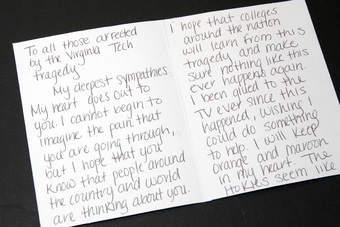 To all those affected
by the Virginia Tech
tragedy
My deepest sympathies.
My heart goes out to
you. I cannot begin to
imagine the pain that
you are going through,
but I hope that you
know that people around
the country and world
are thinking about you.
I hope that colleges
around the nation
will learn from this
tragedy, and make
sure nothing like this
ever happens again.
I been glued to the
TV ever since this
happened, wishing I
could do something
to help. I will keep
orange and maroon
in my heart. The
Hokies seem like